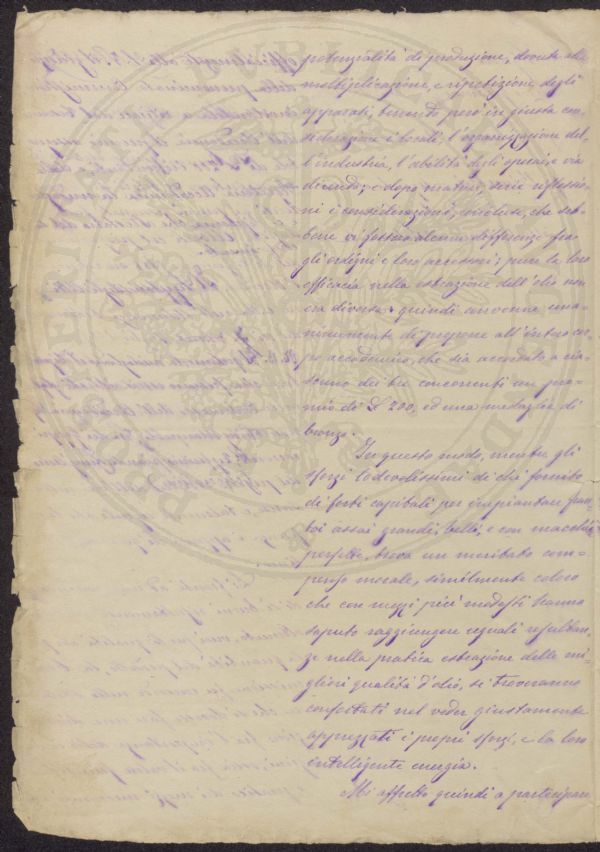 potenzialità di produzione, dovute alla
moltiplicazione, e ripetizione degli
apparati, tenendo però in giusta con-
siderazione i locali, l'organizzazione del-
l'industria, l'abilità degli operai, e via
dicendo; e dopo mature, serie riflessio-
ni e considerazioni, concluse, che seb-
bene vi fossero alcune differenze fra
gli ordigni e loro accessori; pure la loro
efficacia nella estrazione dell'olio non
era diversa e quindi convenne una-
nimemente di proporre all'intero cor-
po accademico, che sia accordato a cia-
scuno dei tre concorrenti un pre-
mio di £ 200, ed una medaglia di
bronzo.
In questo modo, mentre gli
sforzi lodevolissimi di chi fornito
di forti capitali per impiantare fran-
toi assai grandi, belli, e con macchine
perfette, trova un meritato com-
penso morale, similmente coloro
che con mezzi più modesti hanno
saputo raggiungere eguali resultan-
ze nella pratica estrazione delle mi-
gliori qualità d'olio, si troveranno
confortati nel veder giustamente
apprezzati i propri sforzi, e la loro
intelligente energia.
Mi affretto quindi a partecipare